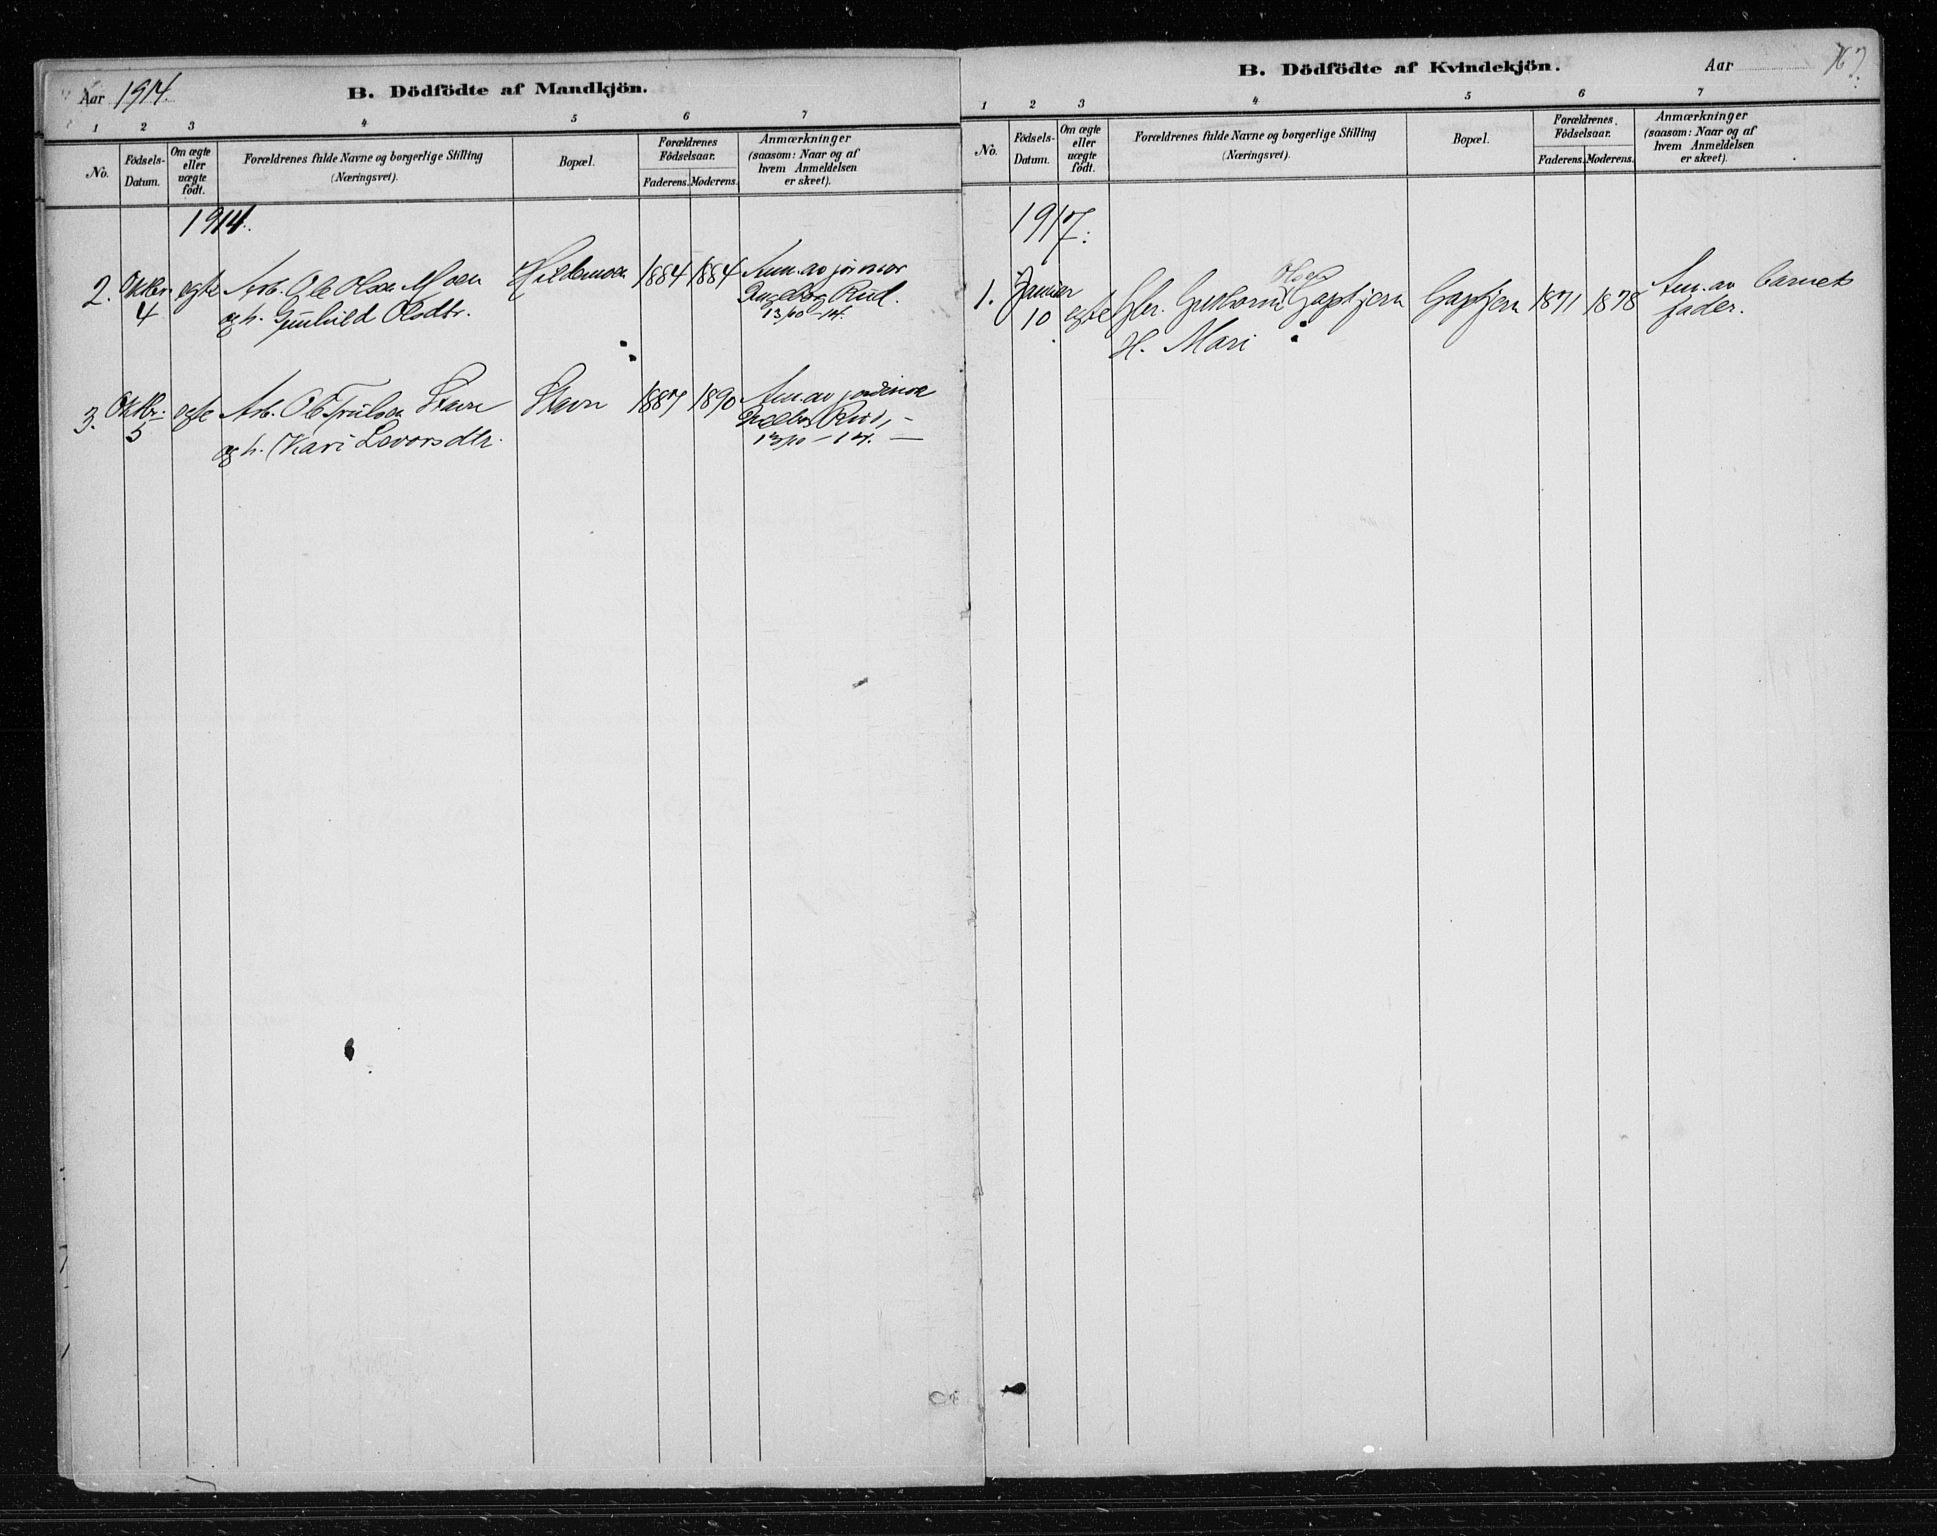 Aar 1914.
B. Dödfödte af Mandkjön.
1 2 3 4 5 6 7
No.
Födsels-
Datum.
Om ægte
eller
uægte
födt.
Forældrenes fulde Navne og borgerlige Stilling
(Næringsvei).
Bopæl.
Forældrenes
Födselsaar.
Faderens. Moderens.
Anmærkninger
(saasom: Naar og af
hvem Anmeldelsen
er skeet).
1914.
2. Oktbr. egte Arb. Ole Olsen Moen 1884 1884 Anm. av jormor
4 og h. Gunhild Olsdtr. Ingeborg Rud.
13/10-14.
3. Oktbr. egte Arb. Ole Trulsen Stavn Stavn 1887 1890 Anm. av
5 og h. Kari Levorsdtr. Ingeborg Rud,
13/10-14.
B. Dödfödte af Kvindekjön.
Aar
167
1 2 3 4 5 6 7
No.
Födsels-
Datum.
Om ægte
eller
uægte
födt.
Forældrenes fulde Navne og borgerlige Stilling
(Næringsvei).
Bopæl.
Forældrenes
Födselsaar.
Faderens. Moderens.
Anmærkninger
(saasom: Naar og af
hvem Anmeldelsen
er skeet).
1917.
Olsen
1. Januar egte Gbr. Gulbrand Gaptjern Gaptjern 1871 1878 Anm. av barnets
10 H. Mari fader.